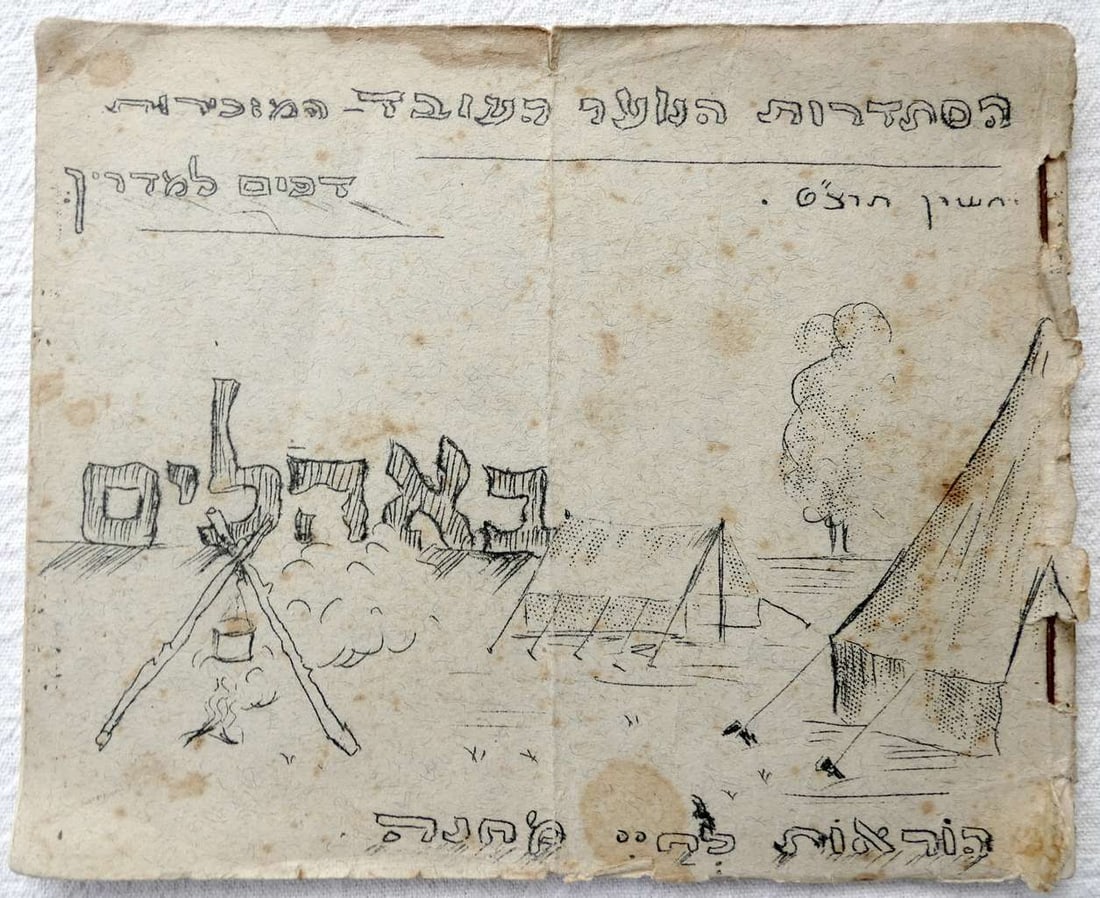 הסתדרות הנוער העובד המזכירות
חשון תרצ"ט.
דפים למדריך
באהלים
הוראות לחיי מחנה